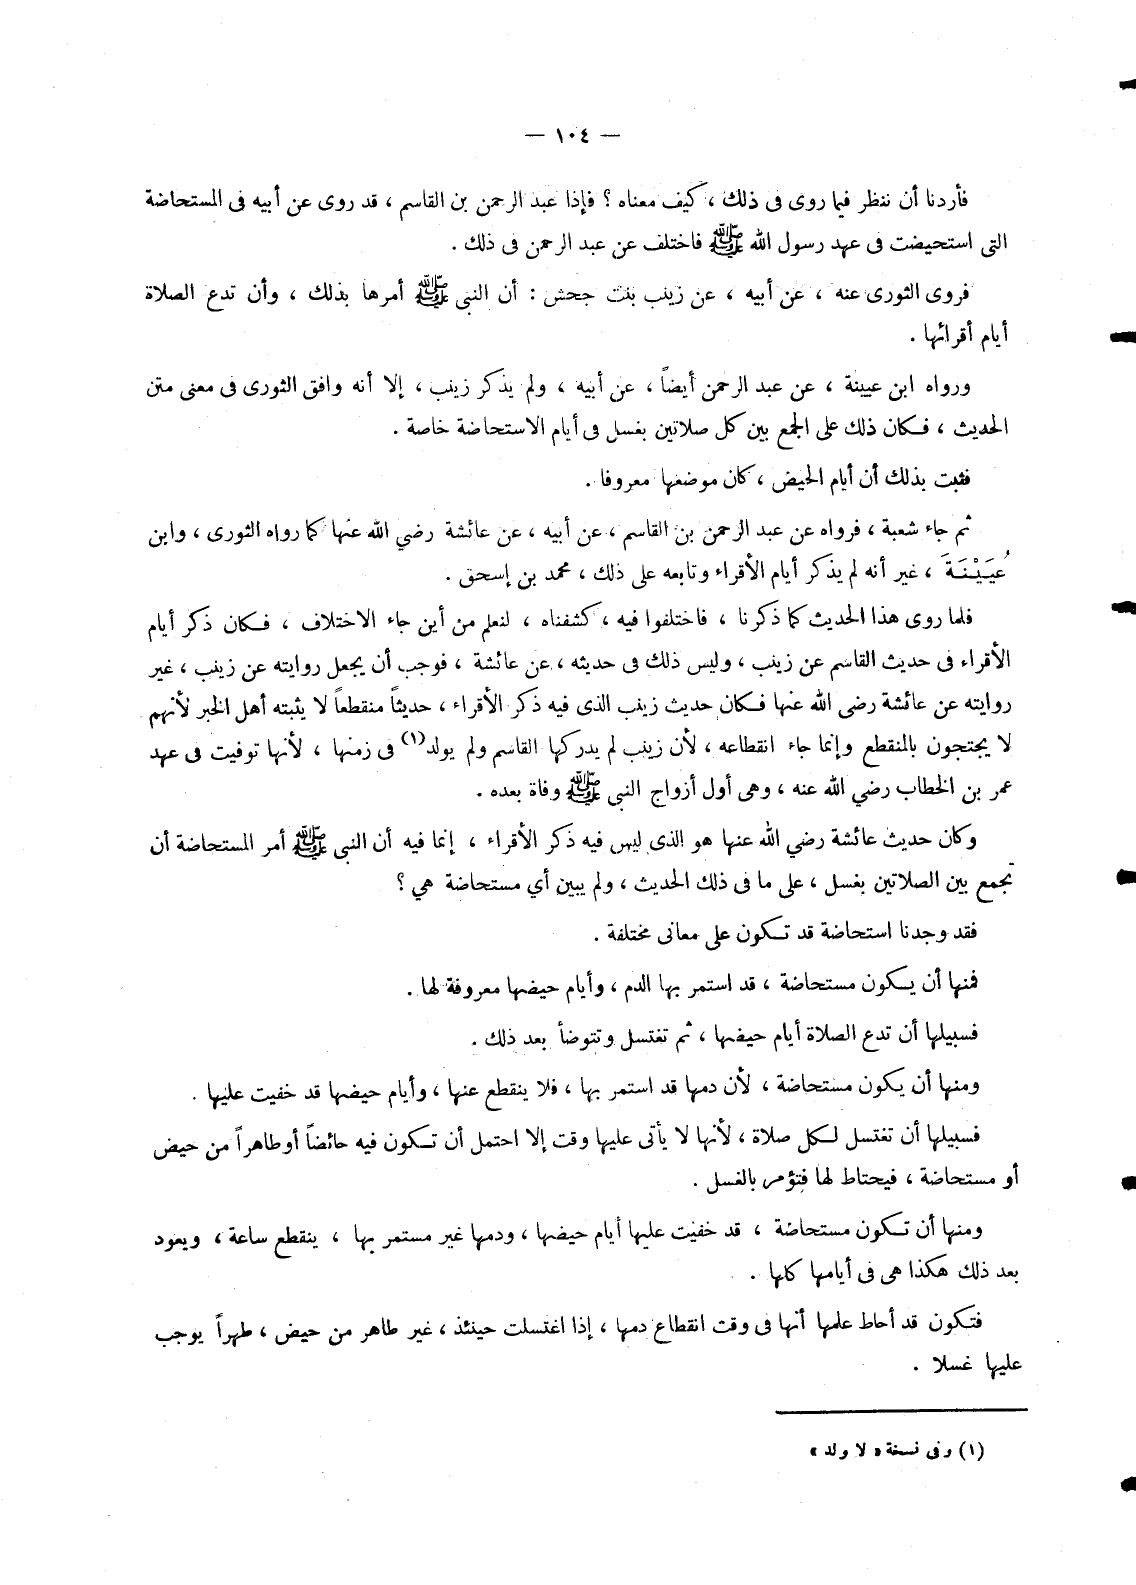 — ١٠٤ —
فأردنا أن ننظر فيما روى فى ذلك ، كيف معناه ؟ فإذا عبد الرحمن بن القاسم ، قد روى عن أبيه فى المستحاضة
التى استحيضت فى عهد رسول الله ﷺ فاختلف عن عبد الرحمن فى ذلك .
فروى الثورى عنه ، عن أبيه ، عن زينب بنت جحش : أن النبى ﷺ أمرها بذلك ، وأن تدع الصلاة
أيام أقرائها .
ورواه ابن عيينة ، عن عبد الرحمن أيضاً ، عن أبيه ، ولم يذكر زينب ، إلا أنه وافق الثورى فى معنى متن
الحديث ، فكان ذلك على الجمع بين كل صلاتين بغسل فى أيام الاستحاضة خاصة .
فثبت بذلك أن أيام الحيض ، كان موضعها معروفا .
ثم جاء شعبة ، فرواه عن عبد الرحمن بن القاسم ، عن أبيه ، عن عائشة رضي الله عنها كما رواه الثورى ، وابن
عُيَيْنَةَ ، غير أنه لم يذكر أيام الأقراء وتابعه على ذلك ، محمد بن إسحق .
فلما روى هذا الحديث كما ذكرنا ، فاختلفوا فيه ، كشفناه ، لنعلم من أين جاء الاختلاف ، فكان ذكر أيام
الأقراء فى حديث القاسم عن زينب ، وليس ذلك فى حديثه ، عن عائشة ، فوجب أن يجعل روايته عن زينب ، غير
روايته عن عائشة رضى الله عنها فكان حديث زينب الذى فيه ذكر الأقراء ، حديثاً منقطعاً لا يثبته أهل الخبر لأنهم
لا يحتجون بالمنقطع وإنما جاء انقطاعه ، لأن زينب لم يدركها القاسم ولم يولد(١) فى زمنها ، لأنها توفيت فى عهد
عمر بن الخطاب رضي الله عنه ، وهى أول أزواج النبى ﷺ وفاة بعده .
وكان حديث عائشة رضي الله عنها هو الذى ليس فيه ذكر الأقراء ، إنما فيه أن النبى ﷺ أمر المستحاضة أن
تجمع بين الصلاتين بغسل ، على ما فى ذلك الحديث ، ولم يبين أي مستحاضة هي ؟
فقد وجدنا استحاضة قد تكون على معانى مختلفة .
فمنها أن يكون مستحاضة ، قد استمر بها الدم ، وأيام حيضها معروفة لها .
فسبيلها أن تدع الصلاة أيام حيضها ، ثم تغتسل وتتوضأ بعد ذلك .
ومنها أن يكون مستحاضة ، لأن دمها قد استمر بها ، فلا ينقطع عنها ، وأيام حيضها قد خفيت عليها .
فسبيلها أن تغتسل لكل صلاة ، لأنها لا يأتى عليها وقت إلا احتمل أن تكون فيه حائضاً أو طاهراً من حيض
أو مستحاضة ، فيحتاط لها فتؤمر بالغسل .
ومنها أن تكون مستحاضة ، قد خفيت عليها أيام حيضها ، ودمها غير مستمر بها ، ينقطع ساعة ، ويعود
بعد ذلك هكذا هى فى أيامها كلها .
فتكون قد أحاط علمها أنها فى وقت انقطاع دمها ، إذا اغتسلت حينئذ ، غير طاهر من حيض ، طهراً يوجب
عليها غسلا .
(١) وفى نسخة « لا ولد »